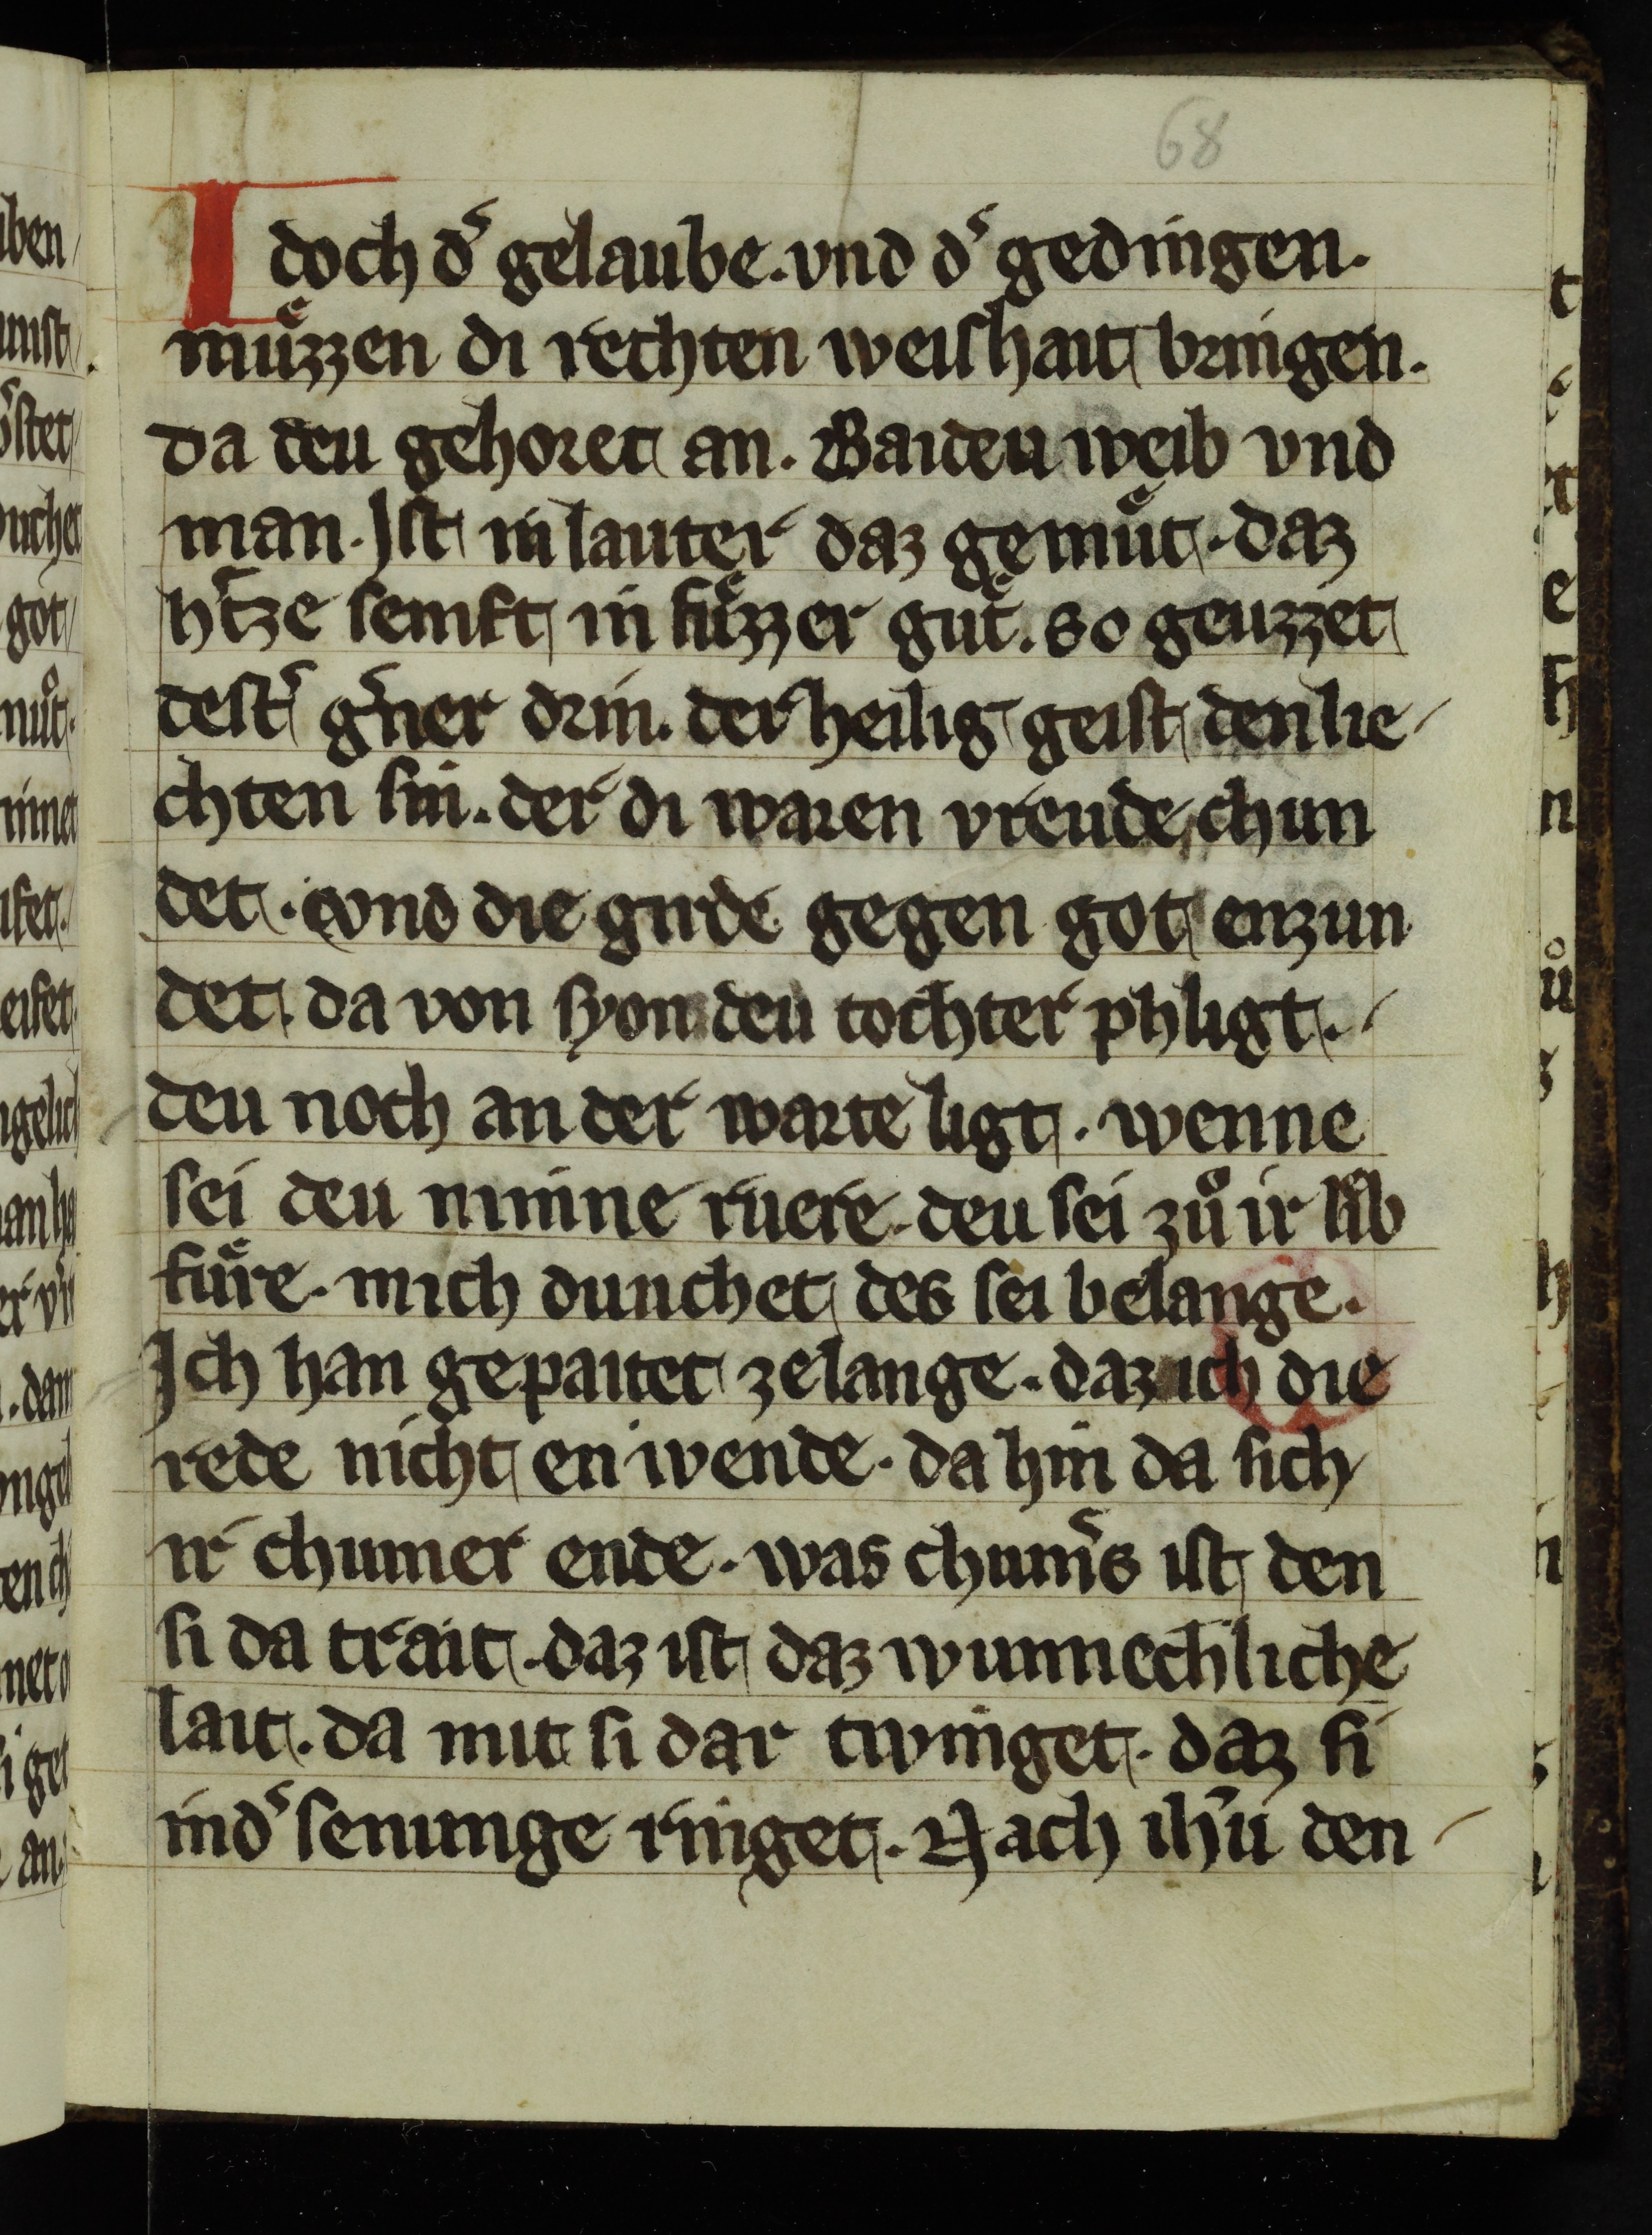 68
Idoch dˢ gelaube. vnd dˢ gedingen.
muͤzzen di rechten weishait bringen.
da deu gehoret an. Baideu weib vnd
man. Jst in lauter daz gemuͤt. daz
hˢtze senift in suͤzzer guͤt. so geuzzet
destˢ gˢner drin. der heilig geist den lie
chten sin. der di waren vreude chun
det. vnd die girde gegen got enzun
det. da von syon deu tochter phligt.
deu noch an der warte ligt. wenne
sei deu minne ruere. deu sei zuͦ ir lib
fuͤre. mich dunchet des sei belange.
Ich han gepaitet zelange. daz ich die
rede nicht en wende. da hin da sich
ir chumer ende. was chumˢs ist den
si da trait. daz ist daz wunnechliche
lait. da mit si dar twinget. daz si
indˢ senunge ringet. Nach ihˢu den